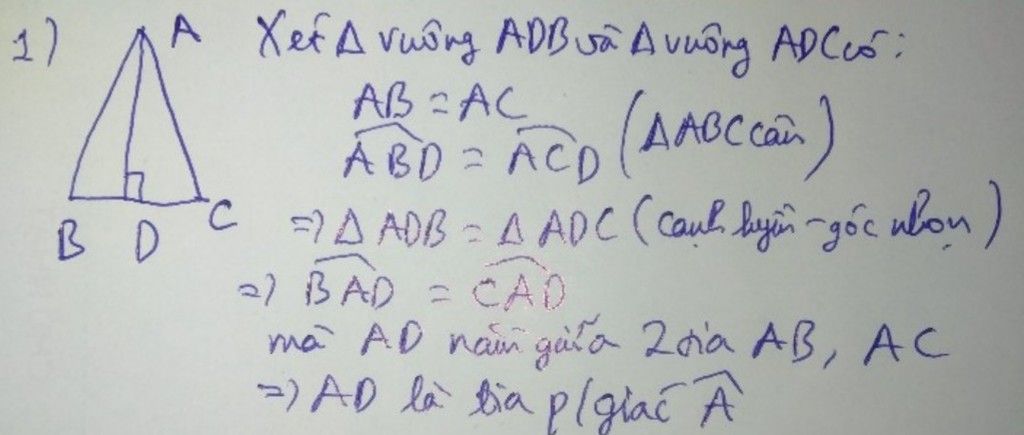 1) A Xét Δ vuông ADB và Δ vuông ADC có:
AB = AC
ABD = ACD (ΔABC cân)
B D C
=> Δ ADB = Δ ADC (cạnh huyền - góc nhọn)
=> BAD = CAD
mà AD nằm giữa 2 tia AB, AC
=> AD là tia p/giác A